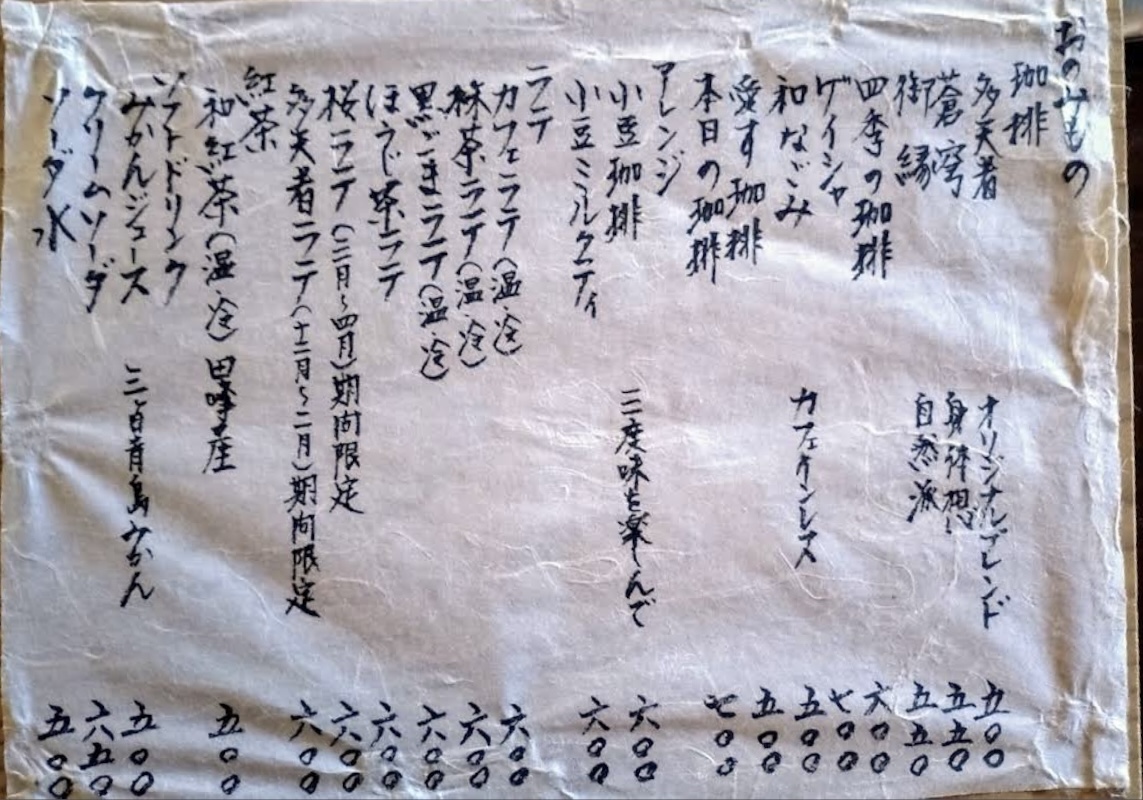 おのみもの
珈琲
多夫着 オリジナルブレンド 五〇〇
蒼穹 身体想い 五五〇
御縁 自然派 五五〇
四季の珈琲 六〇〇
ゲイシャ 七〇〇
和なごみ カフェインレス 五〇〇
愛す珈琲 五〇〇
本日の珈琲 七〇〇
アレンジ
小豆珈琲 三度味を楽しんで 六〇〇
小豆ミルクティ 六〇〇
ラテ
カフェラテ(温・冷) 六〇〇
抹茶ラテ(温・冷) 六〇〇
黒ごまラテ(温・冷) 六〇〇
ほうじ茶ラテ 六〇〇
桜ラテ(三月〜四月)期間限定 六〇〇
多夫着ラテ(十二月〜二月)期間限定 六〇〇
紅茶
和紅茶(温・冷) 田峰産 五〇〇
ソフトドリンク
みかんジュース 三ヶ日青島みかん 五〇〇
クリームソーダ 六五〇
ソーダ水 五〇〇